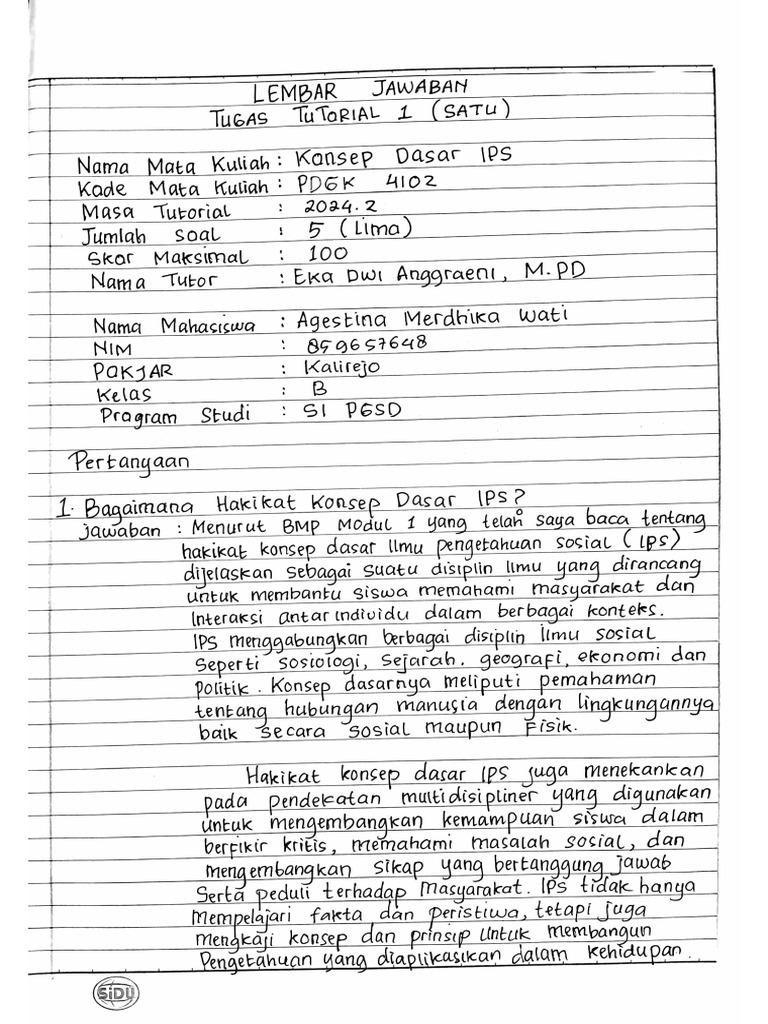 LEMBAR JAWABAN
TUGAS TUTORIAL 1 (SATU)
Nama Mata Kuliah : Konsep Dasar IPS
Kode Mata Kuliah : PDGK 4102
Masa Tutorial : 2024.2
Jumlah soal : 5 (Lima)
Skor Maksimal : 100
Nama Tutor : Eka Dwi Anggraeni, M.PD
Nama Mahasiswa : Agestina Merdhika wati
NIM : 859657648
POKJAR : Kalirejo
Kelas : B
Program Studi : S1 PGSD
Pertanyaan
1. Bagaimana Hakikat Konsep Dasar IPS?
Jawaban : Menurut BMP Modul 1 yang telah saya baca tentang
hakikat konsep dasar Ilmu pengetahuan sosial (IPS)
dijelaskan sebagai suatu disiplin Ilmu yang dirancang
untuk membantu siswa memahami masyarakat dan
Interaksi antar individu dalam berbagai konteks.
IPS menggabungkan berbagai disiplin Ilmu sosial
seperti sosiologi, sejarah. geografi, ekonomi dan
politik. Konsep dasarnya meliputi pemahaman
tentang hubungan manusia dengan lingkungannya
baik secara sosial maupun Fisik.
Hakikat konsep dasar IPS juga menekankan
pada pendekatan multidisipliner yang digunakan
untuk mengembangkan kemampuan siswa dalam
berfikir kritis, memahami masalah sosial, dan
mengembangkan sikap yang bertanggung jawab
Serta peduli terhadap Masyarakat. IPS tidak hanya
Mempelajari fakta dan peristiwa, tetapi juga
mengkaji konsep dan prinsip untuk membangun
Pengetahuan yang diaplikasikan dalam kehidupan.
SiDU